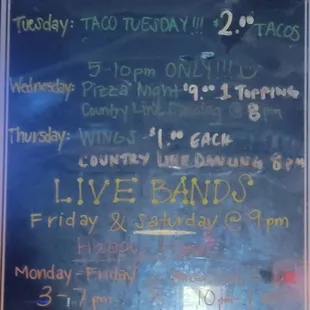 Tuesday: TACO TUESDAY!!! $2.00 TACOS
5-10pm ONLY!!!
Wednesday: Pizza Night $9.00 1 TOPPING
Country Line Dancing @ 8pm
Thursday: WINGS $1.00 EACH
COUNTRY LINE DANCING 8pm
LIVE BANDS
Friday & Saturday @ 9pm
Happy
Monday-Friday
3-7pm 10pm